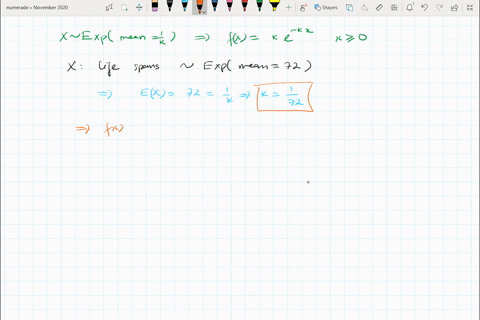 numerade » November 2020
Shapes
X ~ Exp( mean = 1/k ) ⇒ f(x) = k e^{-kx} x ⩾ 0
X: life spans ~ Exp( mean = 72 )
⇒ E(X) = 72 = 1/k ⇒ k = 1/72
⇒ f(x)